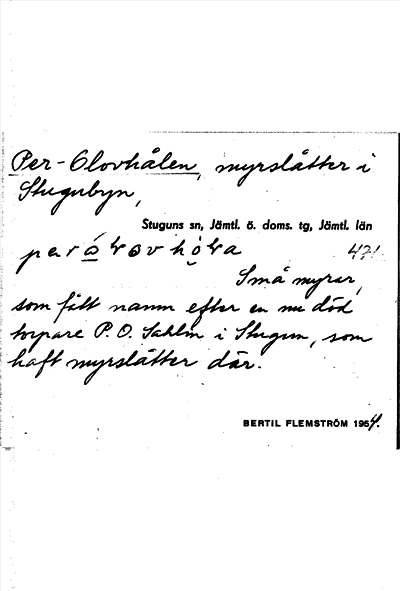 Per-Olovhålen, myrslåtter i
Stugubyn,
Stuguns sn, Jämtl. ö. doms. tg, Jämtl. län
471.
Små myrar,
som fått namn efter en nu död
torpare P. O. Sahlin i Stugun, som
haft myrslåtter där.
BERTIL FLEMSTRÖM 1954.